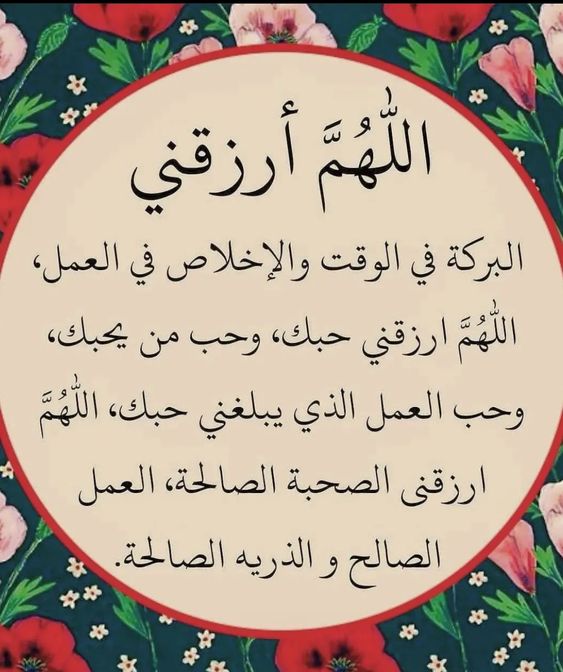 اللّٰهُمَّ أرزقني
البركة في الوقت والإخلاص في العمل،
اللّٰهُمَّ ارزقني حبك، وحب من يحبك،
وحب العمل الذي يبلغني حبك، اللّٰهُمَّ
ارزقنى الصحبة الصالحة، العمل
الصالح و الذريه الصالحة.